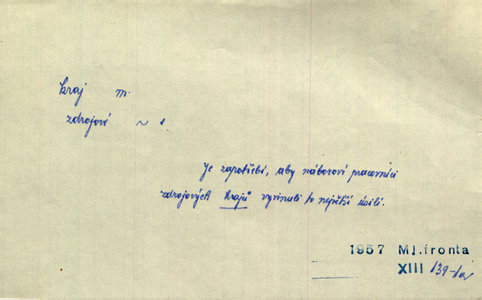 kraj m.
zdrojový ~ s.
Je zapotřebí, aby náboroví pracovníci
zdrojových krajů vyvinuli to největší úsilí.
1957 Ml.fronta
XIII 139-1a